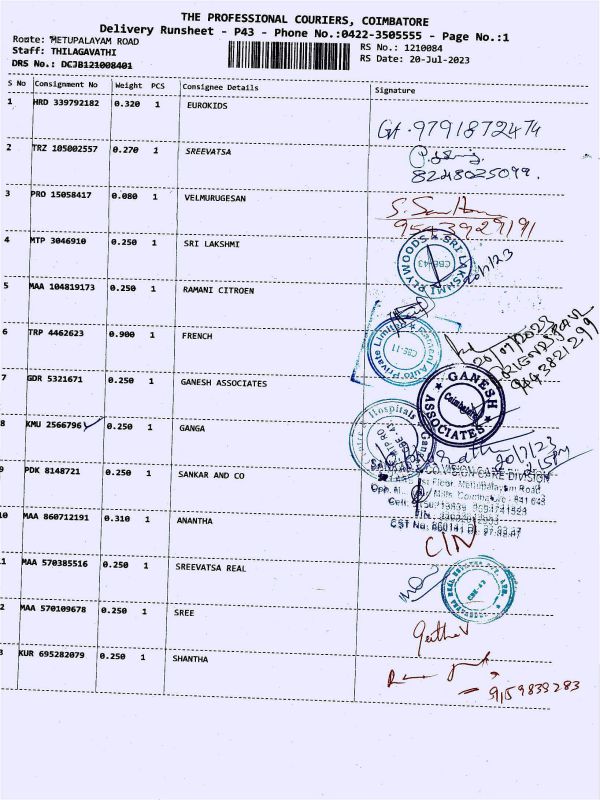 THE PROFESSIONAL COURIERS, COIMBATORE
Delivery Runsheet - P43 - Phone No.:0422-3505555 - Page No.:1
Route: METUPALAYAM ROAD RS No.: 1210084
Staff: THILAGAVATHI RS Date: 20-Jul-2023
DRS No.: DCJB121008401
S No Consignment No Weight PCS Consignee Details Signature
1 HRD 339792182 0.320 1 EUROKIDS 9791872474
2 TRZ 105002557 0.270 1 SREEVATSA 8248025099.
3 PRO 15058417 0.080 1 VELMURUGESAN 9543929191
4 MTP 3046910 0.250 1 SRI LAKSHMI PLYWOODS SRI LAKSHMI CBE-43 20/7/23
5 MAA 104819173 0.250 1 RAMANI CITROEN
6 TRP 4462623 0.900 1 FRENCH Auto Private Limited CBE-11 20/07/2023
7 GDR 5321671 0.250 1 GANESH ASSOCIATES GANESH ASSOCIATES Coimbatore
8 KMU 2566796 0.250 1 GANGA Hospitals 20/7/23
9 PDK 8148721 0.250 1 SANKAR AND CO VISION CARE DIVISION
1st Floor, Mettupalayam Road,
Mills, Coimbatore - 641 043
10 MAA 860712191 0.310 1 ANANTHA
11 MAA 570385516 0.250 1 SREEVATSA REAL
12 MAA 570109678 0.250 1 SREE
13 KUR 695282079 0.250 1 SHANTHA 9159839283